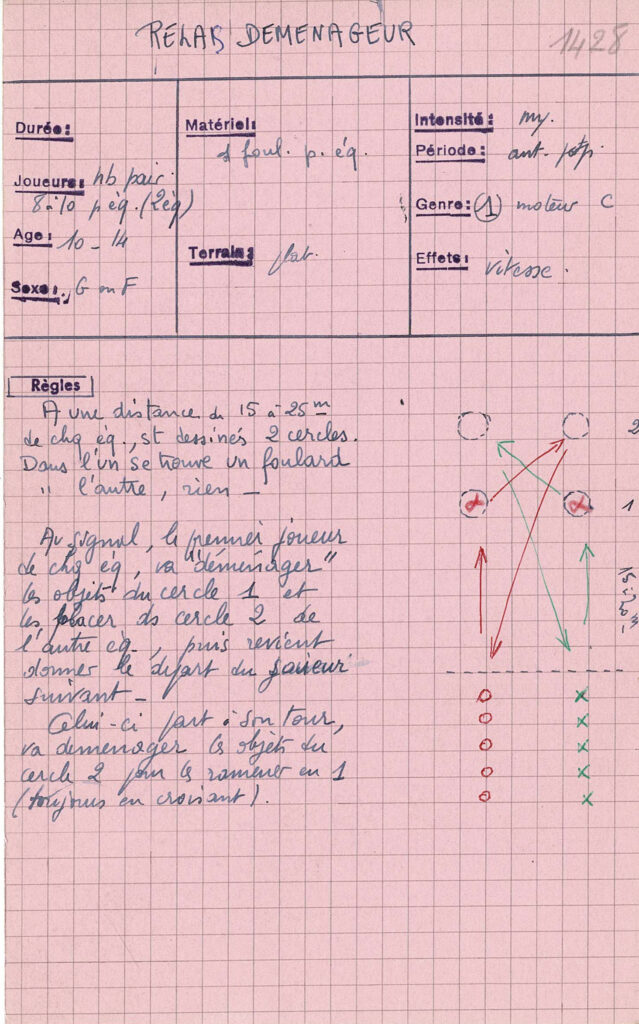 RELAIS DEMENAGEUR
1428
Durée:
Joueurs: nb pair.
8-10 p éq. (2éq)
Age: 10 - 14
Sexe: G ou F
Matériel:
1 foul. p. éq.
Terrain: plat.
Intensité: my.
Période:
Genre: 1 moteur C
Effets: vitesse.
Règles
A une distance de 15 à 25 m
de chq éq., st dessinés 2 cercles.
Dans l'un se trouve un foulard
" l'autre, rien -
Au signal, le premier joueur
de chq éq, va "déménager"
les objets du cercle 1 et
les placer ds cercle 2 de
l'autre éq., puis revient
donner le départ du joueur
suivant -
Celui-ci part à son tour,
va demenager les objets du
cercle 2 pour les ramener en 1
(toujours en croisant).
2
1